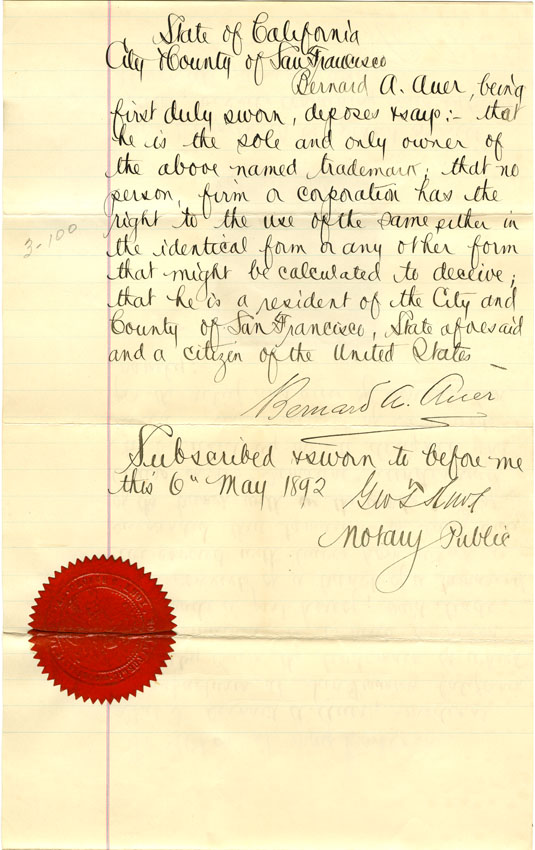 State of California
City & County of San Francisco
Bernard A. Auer, being
first duly sworn, deposes & says:- that
he is the sole and only owner of
the above named trademark; that no
person, firm or corporation has the
right to the use of the same either in
the identical form or any other form
that might be calculated to deceive;
that he is a resident of the City and
County of San Francisco, State aforesaid
and a citizen of the United States
3-100
Bernard A. Auer
Subscribed & sworn to before me
this 6th May 1892
Geo T
Notary Public